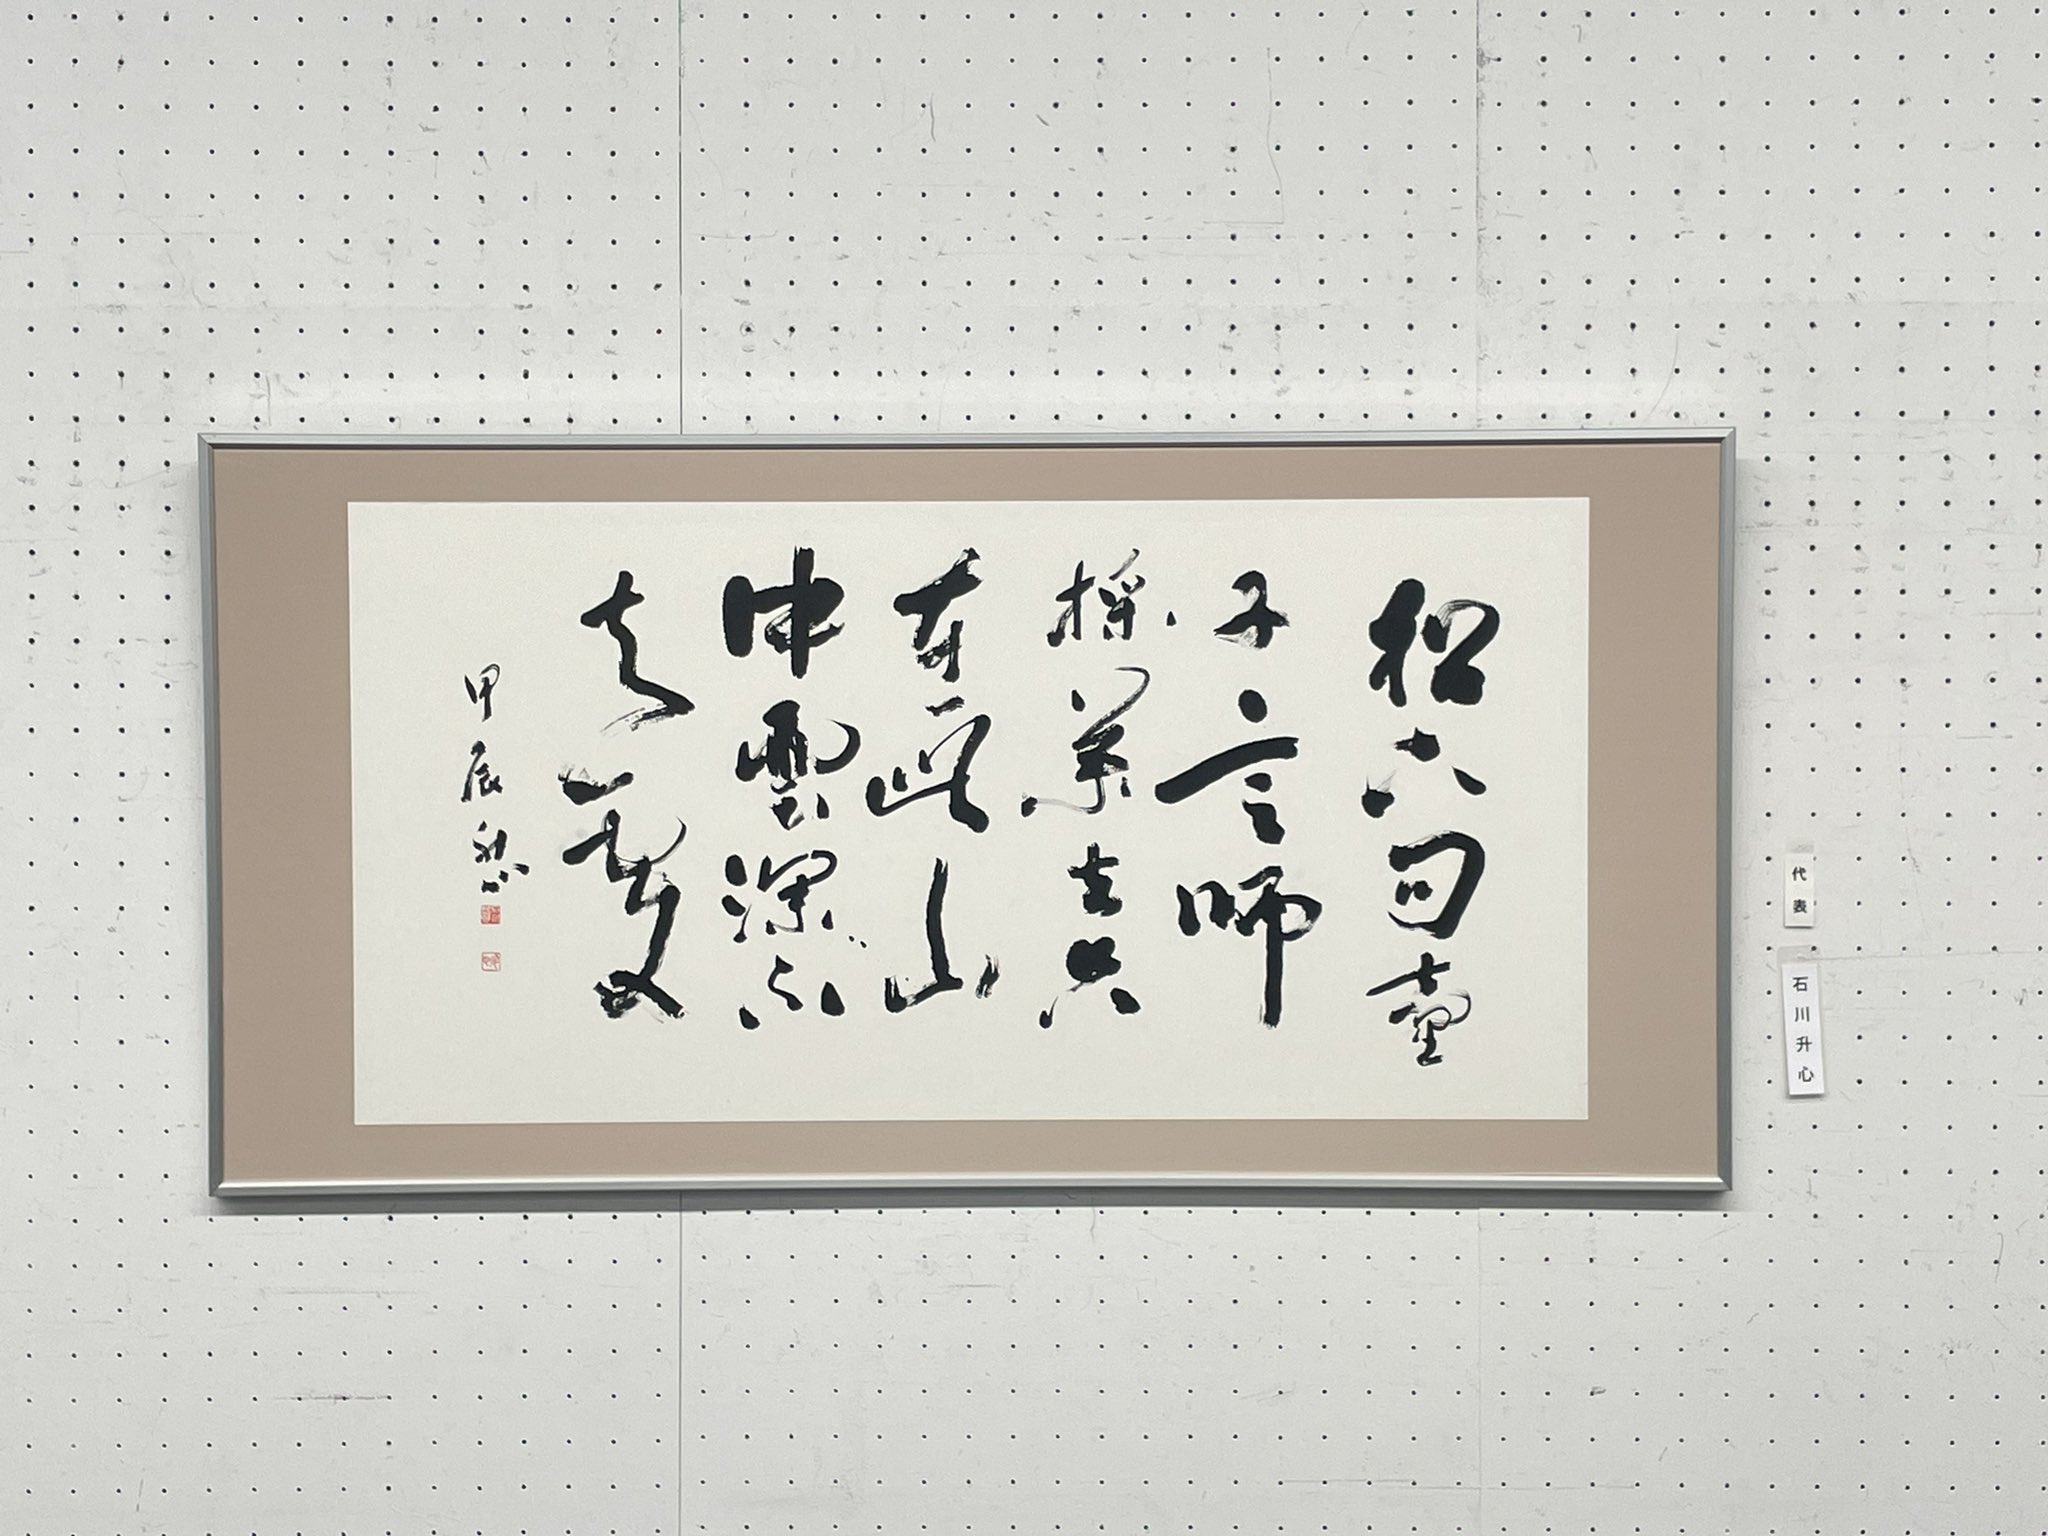 松下問童
子言師
採薬去只
在此山
中雲深不
知處
甲辰秋
代表
石川升心